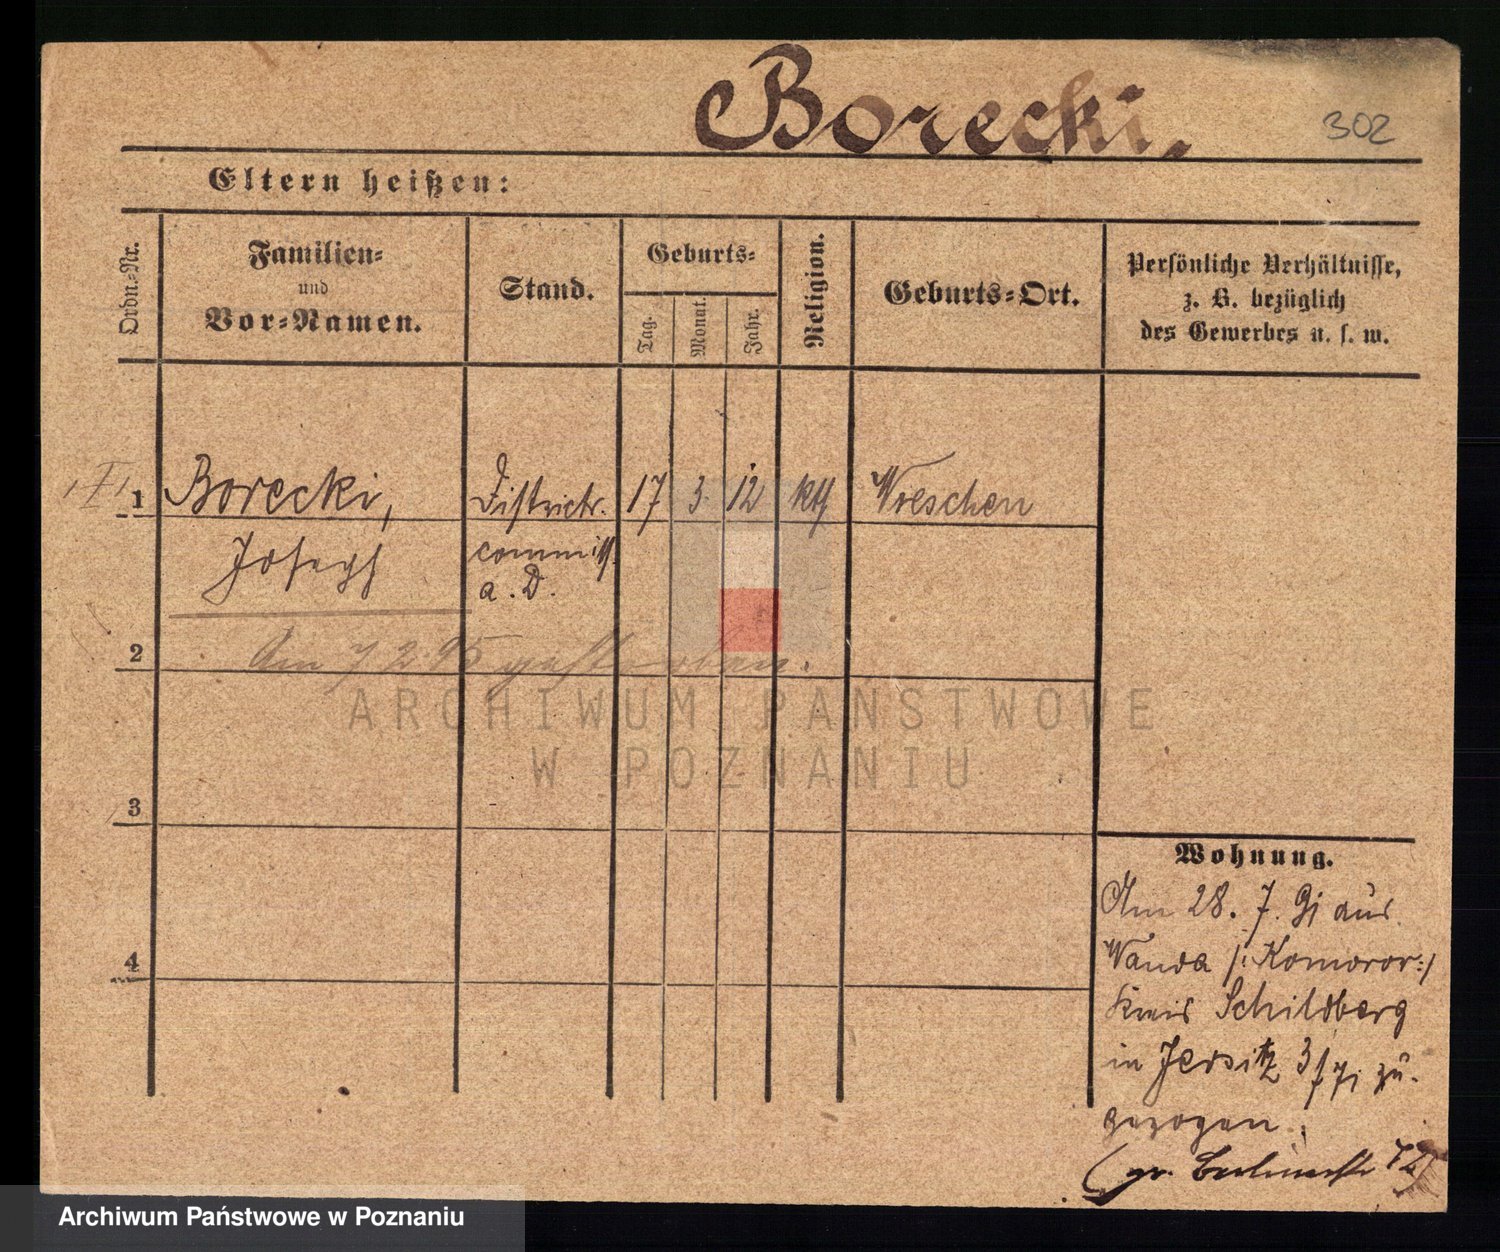 Borecki.
302
Eltern heißen:
Ordn.-Nr.
Familien-
und
Vor-Namen.
Stand.
Geburts-
Tag.
Monat.
Jahr.
Religion.
Geburts-Ort.
Persönliche Verhältnisse,
z. B. bezüglich
des Gewerbes u. s. w.
1 Borecki, Districts. 17 3. 12 kth Wreschen
Joseph commiss.
a. D.
2 Am 7 2. 95 gestorben.
ARCHIWUM PAŃSTWOWE
W POZNANIU
3
4
Wohnung.
Am 28. 7. 91 aus
Wanda /: Komoror :/
Kreis Schildberg
in Jersitz 3/71 zu-
gezogen.
(gr. Berlinerstr 72)
Archiwum Państwowe w Poznaniu